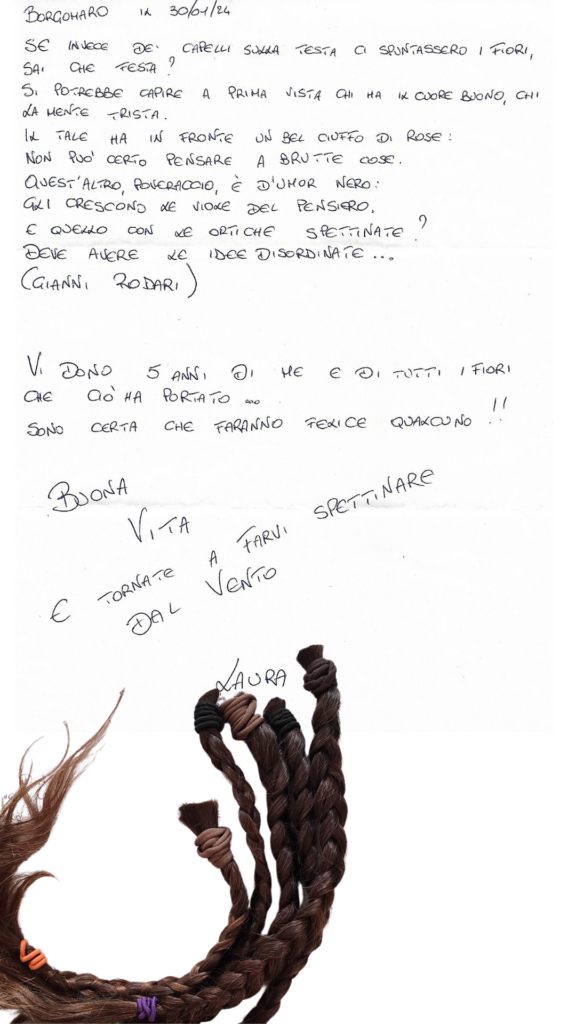 BORGOMARO IL 30/01/24
SE INVECE DEI CAPELLI SULLA TESTA CI SPUNTASSERO I FIORI,
SAI CHE FESTA?
SI POTREBBE CAPIRE A PRIMA VISTA CHI HA IL CUORE BUONO, CHI
LA MENTE TRISTA.
IL TALE HA IN FRONTE UN BEL CIUFFO DI ROSE:
NON PUO' CERTO PENSARE A BRUTTE COSE.
QUEST'ALTRO, POVERACCIO, È D'UMOR NERO:
GLI CRESCONO LE VIOLE DEL PENSIERO.
E QUELLO CON LE ORTICHE SPETTINATE?
DEVE AVERE LE IDEE DISORDINATE...
(GIANNI RODARI)
VI DONO 5 ANNI DI ME E DI TUTTI I FIORI
CHE CIÒ HA PORTATO ...
SONO CERTA CHE FARANNO FELICE QUALCUNO!!
BUONA
VITA
E TORNATE A FARVI SPETTINARE
DAL VENTO
LAURA